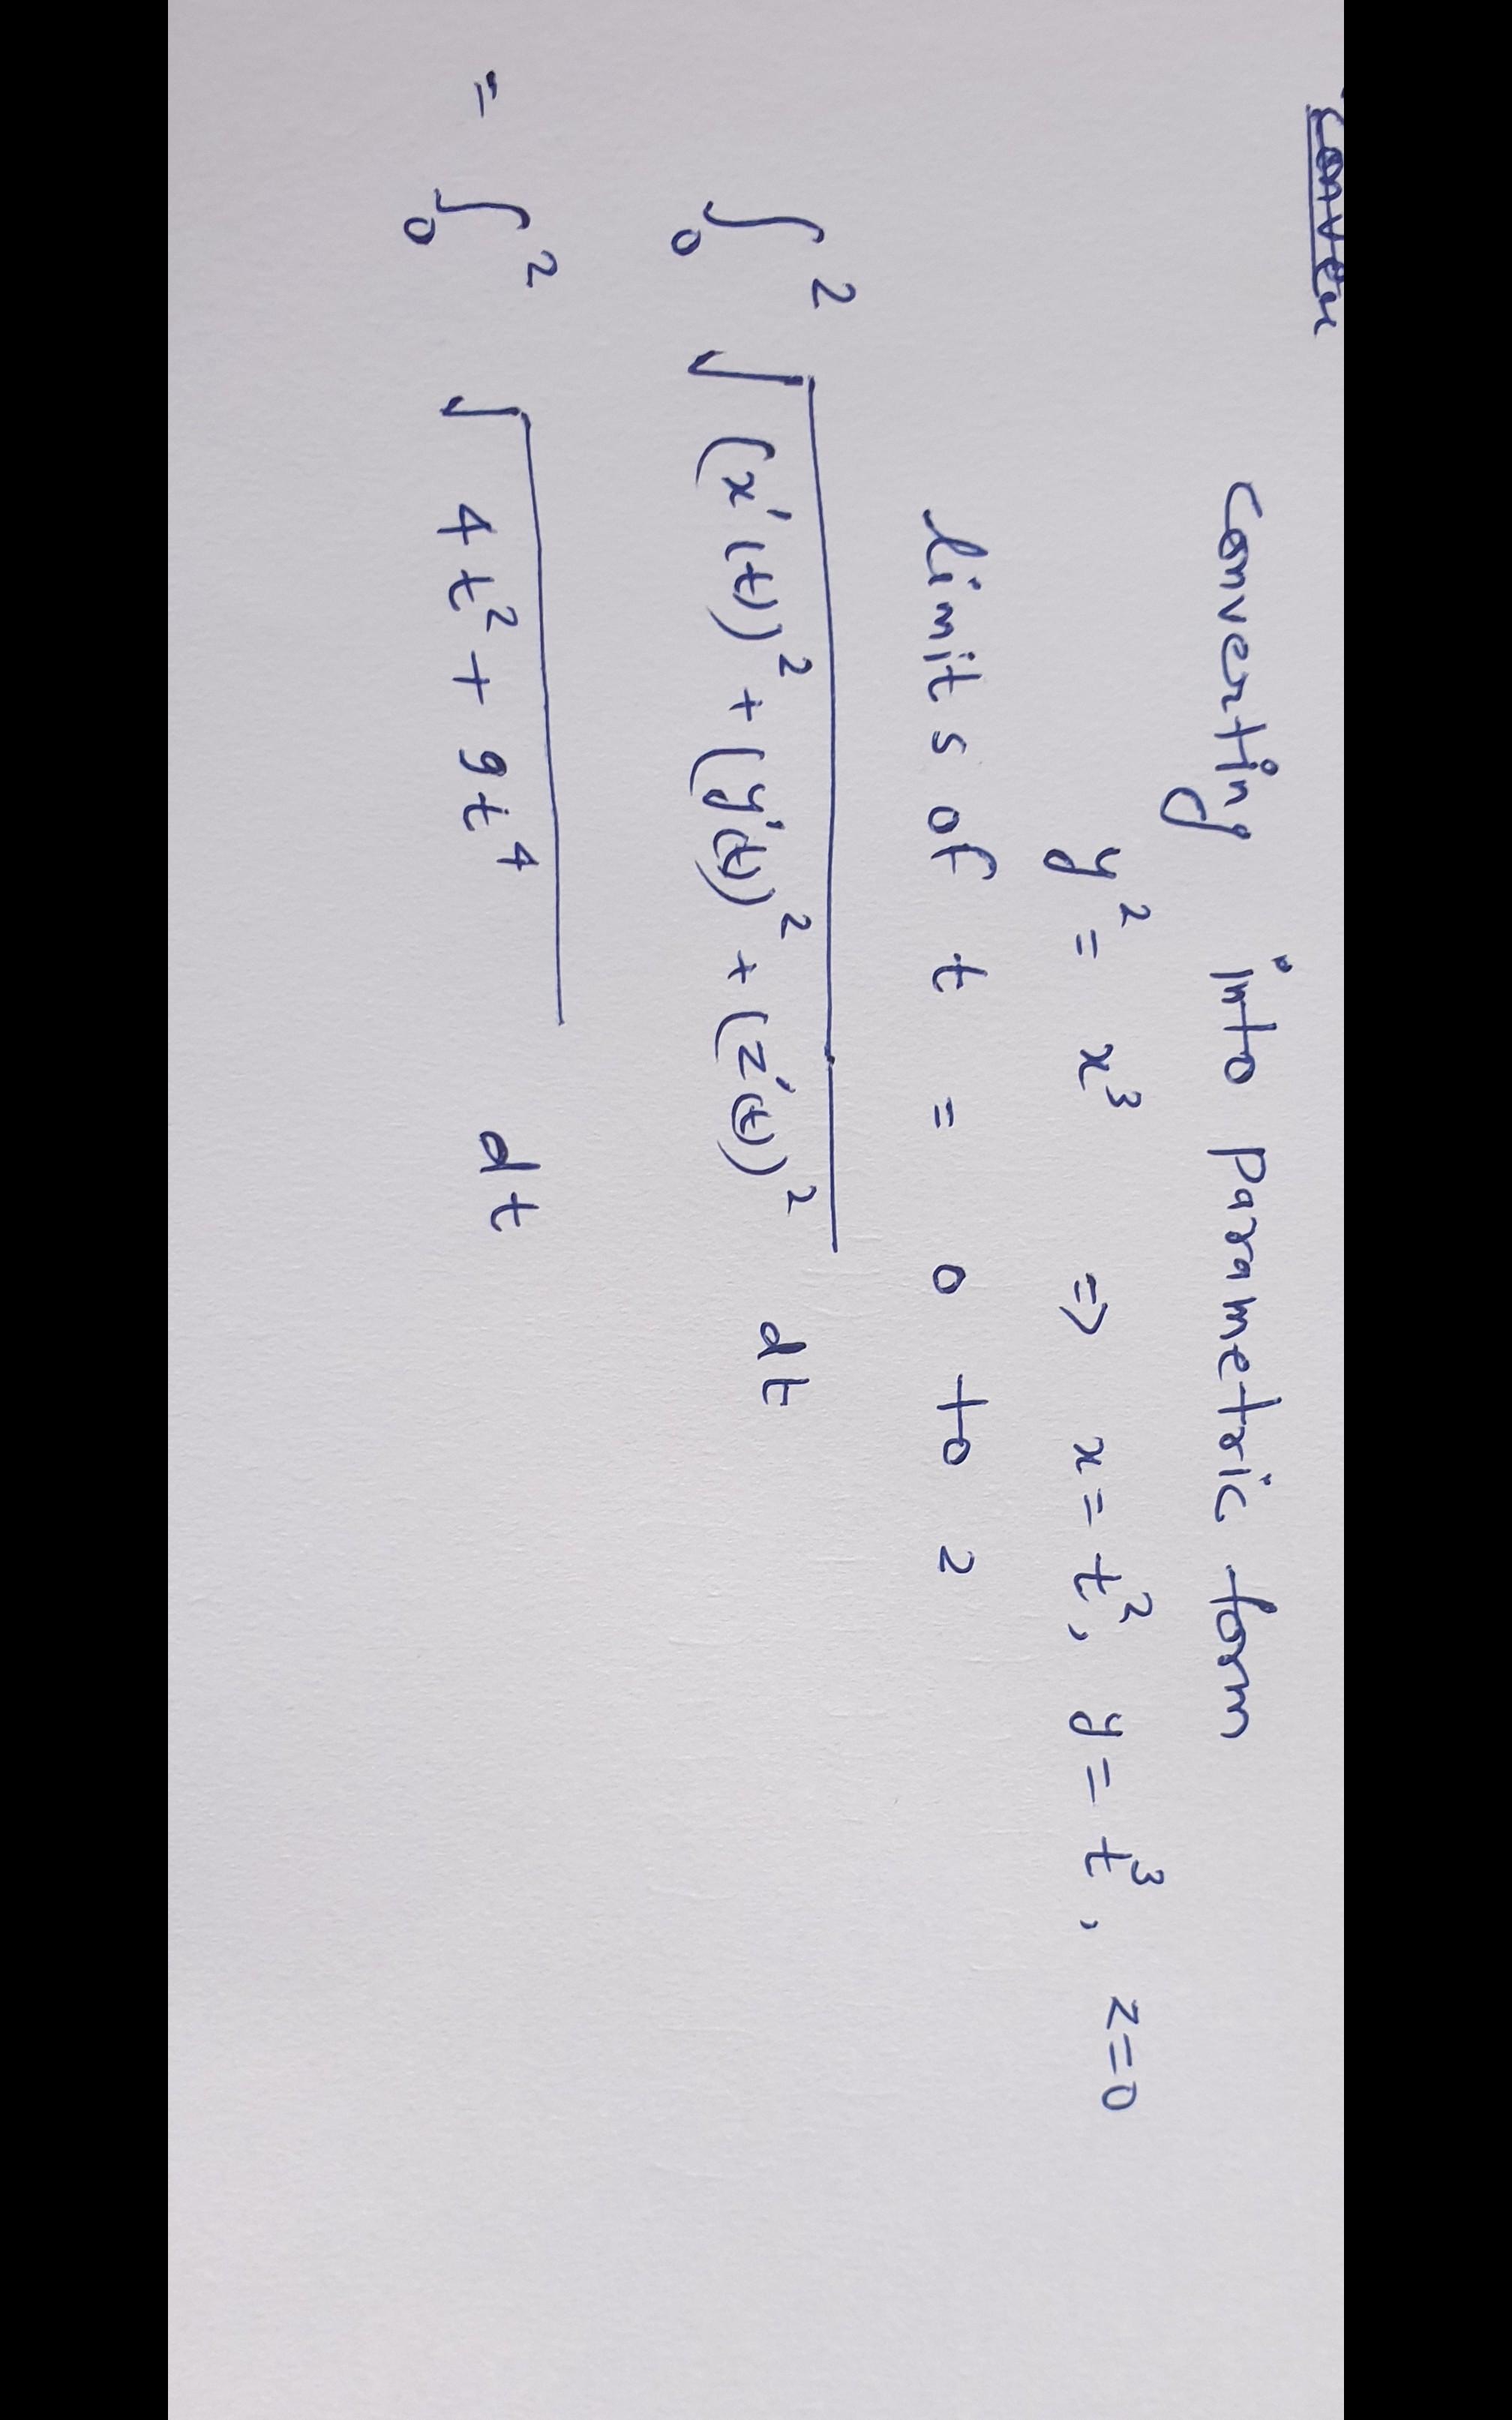 Conver
Converting into Parametric form
y² = x³ => x = t², y = t³, z=0
limits of t = 0 to 2
∫₀² √((x'(t))² + (y'(t))² + (z'(t))²) dt
= ∫₀² √(4t² + 9t⁴) dt